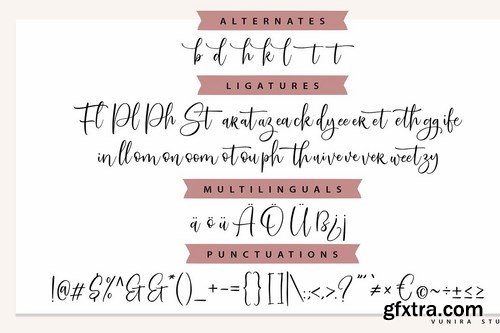 ALTERNATES
b d h k l t t
LIGATURES
Fl Pl Ph St ar at az ea ck dy ee er et eth gg ife
in ll om on oom ot ou ph th ui ve ve ver weetzy
MULTILINGUALS
ä ö ü Ä Ö Ü ß ¿ ¡
PUNCTUATIONS
!@#$%^&&*()_+-={}[]|\:;<,>.?"'`≠×€©~÷±≤≥
VUNIRA STU
gfxtra.com